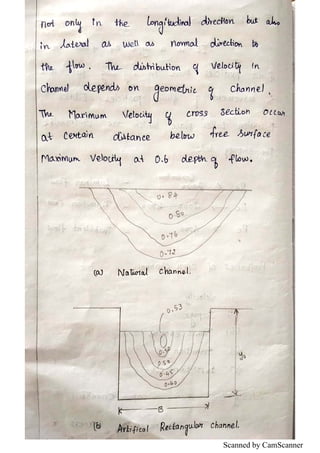 not only in the longitudinal direction but also
in lateral as well as normal direction to
the flow. The distribution of velocity in
Channel depends on geometric of channel.
The Marimum Velocity of cross section occurs
at certain distance below free surface
Maximum Velocity at 0.6 depth of flow.
0.84
0.80
0.76
0.72
(a) Natural channel.
0.53
0.50
0.45
0.40
y₀
B
(b) Artifical Rectangular channel.
Scanned by CamScanner